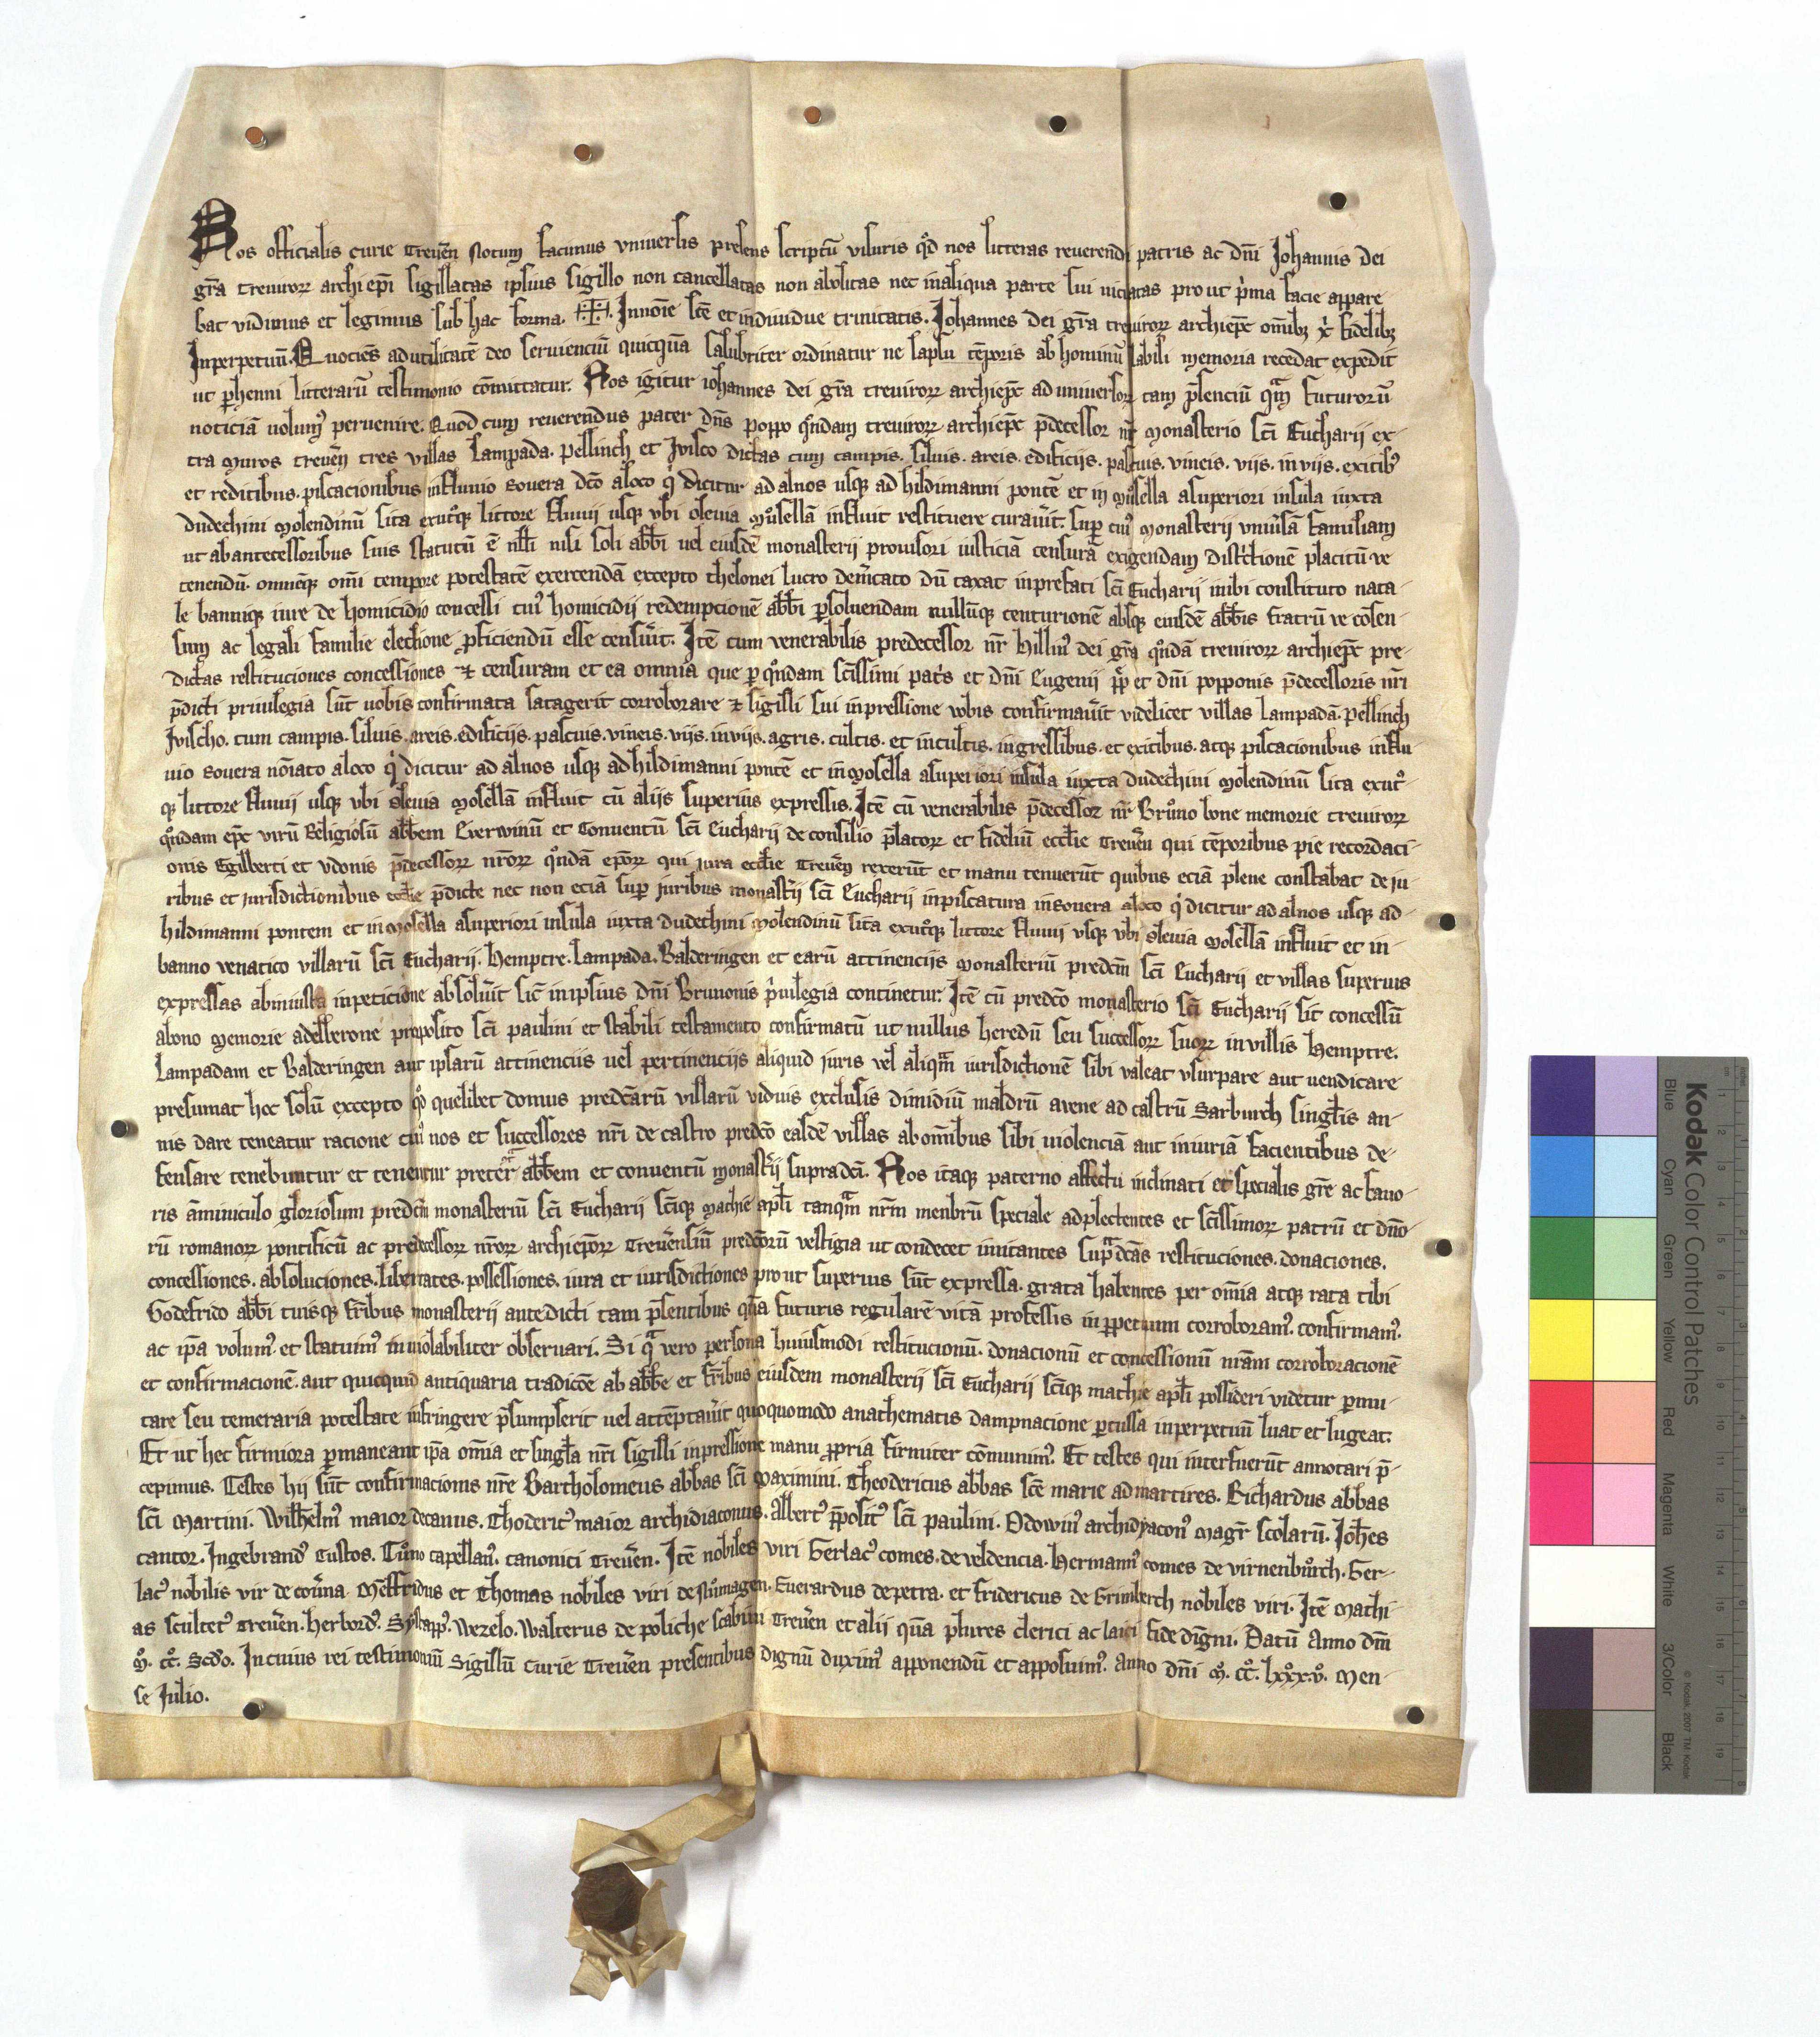 Nos officialis curie Treueñ notum facimus vniuersis presens scriptũ visuris qđ nos litteras reuerendi patris ac dñi Johannis dei
gr̃a treuiroꝝ archiep̃i sigillatas ipsius sigillo non cancellatas non abolitas nec inaliqua parte sui uiciatas prout p̾ma facie appare
bat vidimus et legimus sub hac forma. ✠. Innoĩe sc̃e et indiuidue trinitatis. Johannes dei gr̃a treuiroꝝ archiep̃c om̃ibꝫ x̾ fidelibꝫ
Inperpetuũ. Quociẽs adutilitatẽ deo seruienciũ quicquã salubriter ordinatur ne lapsu tẽporis ab hominũ labili memoria recedat expedit
ut p̱henni litterarũ testimonio cõmittatur. Nos igitur iohannes dei gr̃a treuiroꝝ archiep̃c ad uniuersoꝝ tam p̃senciũ qᵃ̃m futurorũ
noticiã uolum᷒ peruenire. Quod cum reuerendus pater dñs poppo qͦndam treuiroꝝ archiep̃c p̃decessor nr̃ monasterio sc̃i Eucharij ex-
tra muros treueñ tres villas Lampada. pellinch et Jvilco dictas cum campis. siluis. areis. edificijs. pascuis. vineis. vijs. inviis. exitibꝰ
et reditibus. piscacionibus influuio souera dc̃o aloco q̾ dicitur ad alnos usqꝫ ad hildimanni pontẽ et in mͦsella asuperiori insula iuxta
dudechini molendinũ sita exutͦqꝫ littore fluuij usqꝫ vbi oleuia mͦsellã influit restituere curau̾it. sup̱ cui᷒ monasterij vniu̾sã familiam
ut abantecessoribus suis statutũ ẽ nłłi nisi soli abb̃i uel eiusdẽ monasterij prouisori iusticiã censurã exigendam dist̾ctionẽ placitũ-ve
tenendũ. omnẽqꝫ om̃i tempore potestatẽ exercendã excepto thelonei lucro dem̾cato dũ taxat inprefati sc̃i Eucharij inibi constituto nata-
le banniqꝫ iure de homicidio concessi cui᷒ homicidij redempcionẽ abb̃i p̱soluendam nullũqꝫ centurionẽ absqꝫ eiusdẽ abb̃is fratrũ ve cõsen-
sum ac legali familie electione p̱ficiendũ esse censu̾it. Itẽ cum venerabilis predecessor nr̃ hillin᷒ dei gr̃a qͦndã treuiroꝝ archiep̃c pre-
dictas restituciones concessiones ⁊ censuram et ea omnia que p̱ qͦndam sc̃issimi pat̾s et dñi Eugenij pp̃ et dñi popponis p̃decessoris nr̃i
p̃dicti priuilegia sũt uobis confirmata satagerit corroborare ⁊ sigilli sui inpressione vobis confirmau̾it videlicet villas Lampadã. pellinch
Jvilcho. cum campis. siluis. areis. edificijs. pascuis. vineis. vijs. inviis. agris. cultis. et incultis. ingressibus. et exitibus. atqꝫ piscacionibus influ-
uio souera nõiato aloco q̾ dicitur ad alnos usqꝫ adhildimanni pontẽ et inmosella asuperiori insula iuxta dudechini molendinũ sita exutͦ-
qꝫ littore fluuij usqꝫ vbi oleuia mosellã influit cũ alijs superius expressis. Itẽ cũ venerabilis p̃decessor nr̃ Brͦuno bone memorie treuiroꝝ
qͦndam ep̃c virũ Religiosũ abbẽm Euerwinũ et Conuentũ sc̃i Eucharij de consilio p̃latoꝝ et fideliũ eccłie Treueñ qui tẽporibus pie recordaci-
onis Egilberti et vdonis p̃decessoꝝ nr̃oꝝ qͦndã ep̃oꝝ qui jura eccłie Treueñ rexerũt et manu tenuerũt quibus eciã plene constabat de ju-
ribus et jurisdictionibus eccłie p̃dicte nec non eciã sup̱ juribus monast̾ij sc̃i Eucharij inpiscatura insouera aloco q̾ dicitur ad alnos usqꝫ ad-
hildimanni pontem et inmosella asuperiori insula iuxta dudechini molendinũ sita exutͦqꝫ littore fluuij vsqꝫ vbi oleuia mosellã influit et in-
banno venatico villarũ sc̃i Eucharij. hemptre. Lampada. Balderingen et earũ attinencijs monasteriũ predcm̃ sc̃i Eucharij et villas superius
expressas abiniusta inpeticione absolu̾it sic̃ inipsius dñi Brunonis p̾uilegia continetur. Itẽ cũ predc̃o monasterio sc̃i Eucharij sit concessũ
abono memorie adelberone preposito sc̃i paulini et stabili testamento confirmatũ ut nullus heredũ seu successoꝝ suoꝝ invillis hemptre.
Lampadam et Balderingen aut ipsarũ attinenciis uel pertinencijs aliquid juris vel aliqᵃ̃m iurisdictionẽ sibi valeat vsurpare aut uendicare
presumat hoc solũ excepto qͦđ quelibet domus predc̃arũ villarũ viduis exclusis dimidiũ maldrũ auene ad castrũ Sarburch singłis an-
nis dare teneatur racione cui᷒ nos et successores nr̃i de castro predc̃o easdẽ villas abom̃ibus sibi uiolenciã aut iniuriã facientibus de-
fensare tenebuntur et tenentur preter abbẽm et conuentũ monast̾ij supradc̃i. Nos itaqꝫ paterno affectu inclinati et specialis gr̃e ac fauo-
ris ãminiculo gloriosum predcm̃ monasteriũ sc̃i Eucharij sc̃iqꝫ mathie apłi tanqᵃ̃m nr̃m menbrũ speciale adplectentes et sc̃issimoꝝ patrũ et dño-
rũ romanoꝝ pontificũ ac predecessoꝝ nr̃oꝝ archiep̃oꝝ Treu̾ensiũ predc̃orũ vestigia ut condecet imitantes supᵃdc̃as restituciones. donaciones.
concessiones. absoluciones. libertates. possessiones. iura et iurisdictiones prout superius sũt expressa. grata habentes per om̃ia atqꝫ rata tibi
Godefrido abb̃i tuisqꝫ fr̃ibus monasterij antedicti tam p̃sentibus qᵃ̃ futuris regularẽ vitã professis inp̱petuum corroboram᷒. confirmam᷒.
ac ip̃a volum᷒ et statuim᷒ inuiolabiliter obseruari. Si qᵃ vero persona huiusmodi restitucionũ. donacionũ et concessionũ nr̃am corroboracionẽ
et confirmacionẽ. aut quicquid antiquaria tradicõe ab abb̃e et fr̃ibus eiusdem monasterij sc̃i Eucharij sc̃iqꝫ mathie apłi possideri videtur p̱mu-
tare seu temeraria potestate infringere p̃sumpserit uel attẽptau̾it quoquomodo anathematis dampnacione p̱cussa inperpetuũ luat et lugeat.
Et ut hec firmiora p̱maneant ip̃a om̃ia et singła nr̃i sigilli inpressione manu p̱pria firmiter cõmunim᷒. Et testes qui interfuerũt annotari p̃-
cepimus. Testes hij sũt confirmacionis nr̃e Bartholomeus abbas sc̃i maximini. Theodericus abbas sc̃e marie ad martires. Richardus abbas
sc̃i Martini. Wilhełm᷒ maior decanus. Thoderic᷒ maior archidiaconus. Albert᷒ p̃posit᷒ sc̃i paulini. Odowin᷒ archidyacon᷒ magr̃ scolarũ. Joh̃es
cantor. Ingebrand᷒ Custos. Cͦuno capellan᷒. canonici Treueñ. Itẽ nobiles viri Gerlac᷒ comes. develdencia. hermann᷒ comes de virnenbͦurch. Ger-
lac᷒ nobilis vir de cou̾na. Meffridus et Thomas nobiles viri de Nͦumagen. Euerardus depetra. et fridericus de Brimberch nobiles viri. Itẽ Mathi-
as scultet᷒ Treueñ. herbord᷒. Wezelo. Walterus de poliche scabini Treueñ et alij qᵃ̃ plures clerici ac laici fide digni. Datũ Anno dñi
mͦ. ccͦ. scđo. In cuius rei testimoniũ Sigillũ Curie Treueñ presentibus dignũ duxim᷒ apponendũ et apposuim᷒. Anno dñi mͦ. ccͦ. lxxxͦ.vͦ. Men-
se Julio.
Kodak Color Control Patches
© Kodak, 2007 TM: Kodak
Blue
Cyan
Green
Yellow
Red
Magenta
White
3/Color
Black